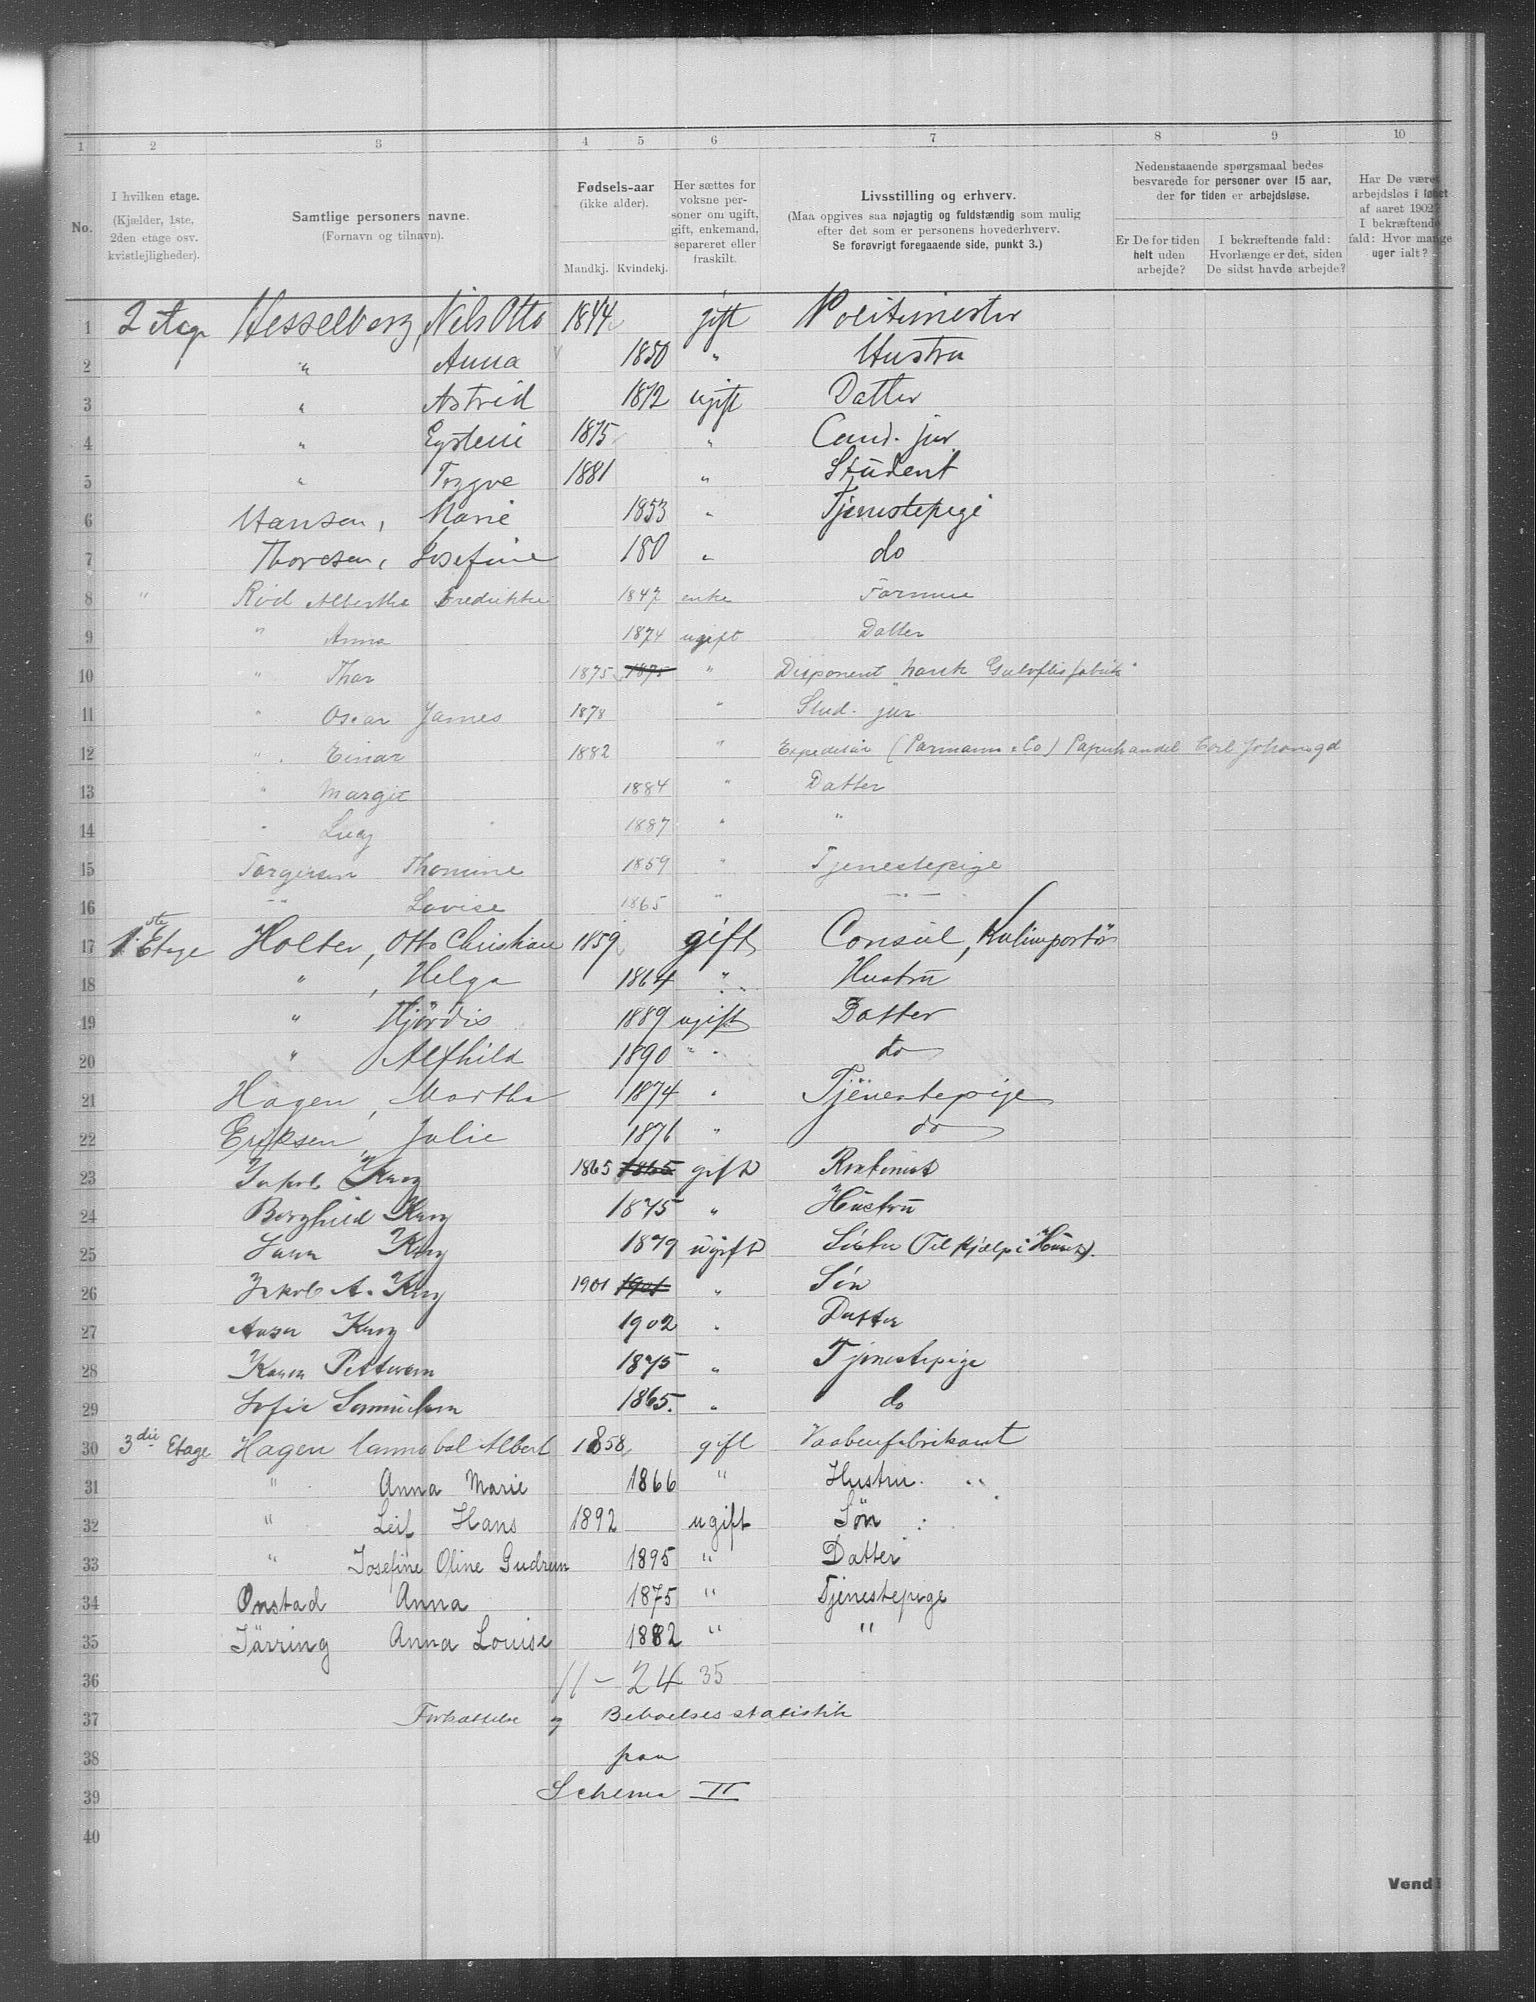 1 2 3 4 5 6 7 8 9 10
No.
I hvilken etage.
(Kjælder, 1ste, 2den etage osv. kvistlejligheder).
Samtlige personers navne.
(Fornavn og tilnavn).
Fødsels-aar
(ikke alder).
Mandkj. Kvindekj.
Her sættes for voksne personer om ugift, gift, enkemand, separeret eller fraskilt.
Livsstilling og erhverv.
(Maa opgives saa nøjagtig og fuldstændig som mulig
efter det som er personens hovederhverv.
Se forøvrigt foregaaende side, punkt 3.)
Nedenstaaende spørgsmaal bedes
besvarede for personer over 15 aar,
der for tiden er arbejdsløse.
Er De for tiden helt uden arbejde?
I bekræftende fald: Hvorlænge er det, siden De sidst havde arbejde?
Har De været arbejdsløs i løbet af aaret 1902? I bekræftende fald: Hvor mange uger ialt?
1 2 etage Hesselberg, Nils Otto 1844 gift Politimester
2 " Anna 1850 " Hustru
3 " Astrid 1872 ugift Datter
4 " Eystein 1875 " Cand. jur.
5 " Trygve 1881 " Student
6 Hansen, Marie 1853 " Tjenestepige
7 Thoresen, Josefine 180 " do
8 " Rød Alberthe Fredrikke 1847 enke Formue
9 " Anna 1874 ugift Datter
10 " Thor 1875 1875 " Disponent norsk Gulvflisfabrik
11 " Oscar James 1878 " Stud. jur
12 " Einar 1882 " Expeditør (Parmann & Co) Papirhandel Carl Johansgd
13 " Margit 1884 " Datter
14 " Lucy 1887 " "
15 Torgersen Thomine 1859 " Tjenestepige
16 " Lovise 1865 " "
17 1ste Etage Holter, Otto Christian 1859 gift Consul, Kulimportør
18 " , Helga 1864 " Hustru
19 " Hjørdis 1889 ugift Datter
20 " Alfhild 1890 " do
21 Hagen, Martha 1874 " Tjenestepige
22 Eriksen Julie 1876 " do
23 Jakob Krog 1865 1865 gift
24 Borghild Krog 1875 " Hustru
25 Krog 1879 ugift Søster (Til Hjælp i Huset).
26 Jakob A. Krog 1901 1901 " Søn
27 Krog 1902 " Datter
28 Karen Pettersen 1875 " Tjenestepige
29 Sofie Samuelsen 1865. " do
30 3die Etage Hagen Cannabal Albert 1858 gift Vaabenfabrikant
31 " Anna Marie 1866 " Hustru
32 " Leif Hans 1892 ugift Søn
33 " Josefine Oline Gudrun 1895 " Datter
34 Onstad Anna 1875 " Tjenestepige
35 Järring Anna Louise 1882 " "
36 11 - 24 35
37 Fortsættelse og Beboelsesstatistik
38 paa
39 Schema II
40
Vend!